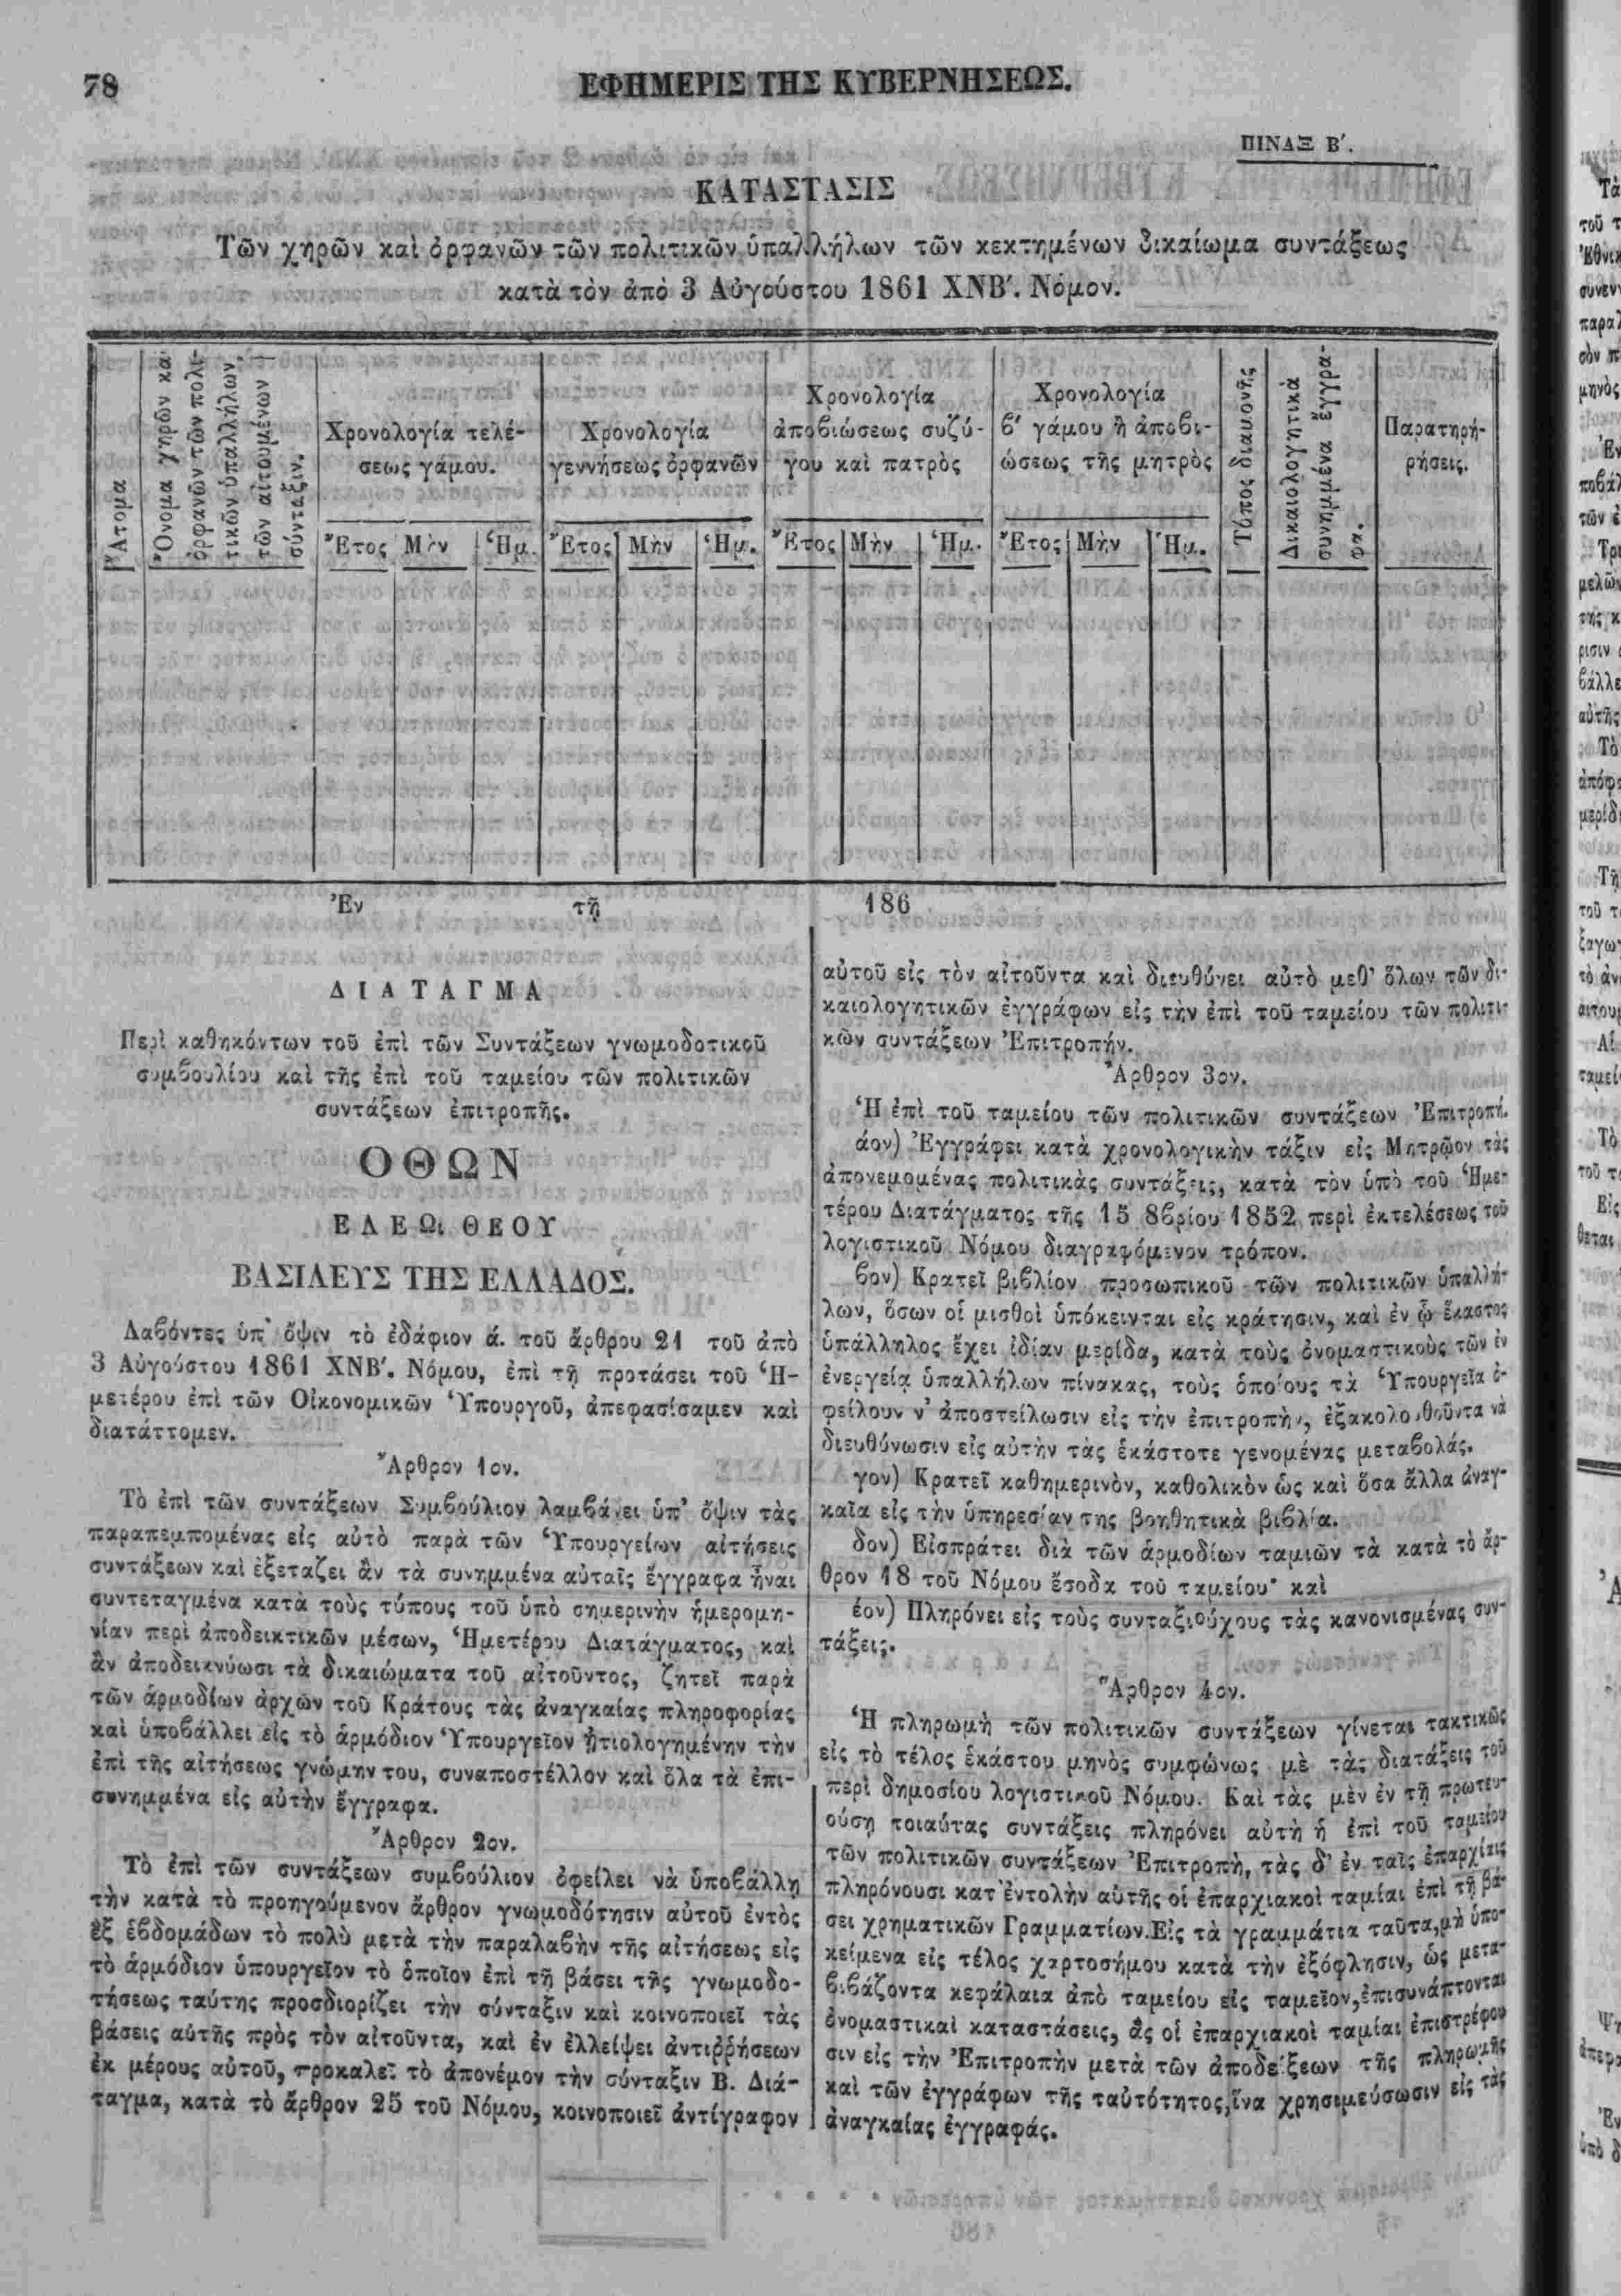 78
ΕΦΗΜΕΡΙΣ ΤΗΣ ΚΥΒΕΡΝΗΣΕΩΣ.
ΠΙΝΑΞ Β΄.
ΚΑΤΑΣΤΑΣΙΣ
Τῶν χηρῶν καὶ ὀρφανῶν τῶν πολιτικῶν ὑπαλλήλων τῶν κεκτημένων δικαίωμα συντάξεως
κατὰ τὸν ἀπὸ 3 Αὐγούστου 1861 ΧΝΒ΄. Νόμον.
Ἄτομα
Ὄνομα χηρῶν καὶ
ὀρφανῶν τῶν πολι-
τικῶν ὑπαλλήλων,
τῶν αἰτουμένων
σύνταξιν.
Χρονολογία τελέ-
σεως γάμου.
Χρονολογία
γεννήσεως ὀρφανῶν
Χρονολογία
ἀποβιώσεως συζύ-
γου καὶ πατρὸς
Χρονολογία
β΄ γάμου ἢ ἀποβι-
ώσεως τῆς μητρὸς
Τόπος διαμονῆς
Δικαιολογητικά
συνημμένα ἔγγρα-
φα.
Παρατηρή-
ρήσεις.
Ἔτος Μὴν Ἡμ. Ἔτος Μὴν Ἡμ. Ἔτος Μὴν Ἡμ. Ἔτος Μὴν Ἡμ.
Ἐν τῇ 186
ΔΙΑΤΑΓΜΑ
Περὶ καθηκόντων τοῦ ἐπὶ τῶν Συντάξεων γνωμοδοτικοῦ
συμβουλίου καὶ τῆς ἐπὶ τοῦ ταμείου τῶν πολιτικῶν
συντάξεων ἐπιτροπῆς.
ΟΘΩΝ
ΕΛΕΩι ΘΕΟΥ
ΒΑΣΙΛΕΥΣ ΤΗΣ ΕΛΛΑΔΟΣ.
Λαβόντες ὑπ' ὄψιν τὸ ἐδάφιον ά. τοῦ ἄρθρου 21 τοῦ ἀπὸ
3 Αὐγούστου 1861 ΧΝΒ΄. Νόμου, ἐπὶ τῇ προτάσει τοῦ Ἡ-
μετέρου ἐπὶ τῶν Οἰκονομικῶν Ὑπουργοῦ, ἀπεφασίσαμεν καὶ
διατάττομεν.
Ἄρθρον 1ον.
Τὸ ἐπὶ τῶν συντάξεων Συμβούλιον λαμβάνει ὑπ' ὄψιν τὰς
παραπεμπομένας εἰς αὐτὸ παρὰ τῶν Ὑπουργείων αἰτήσεις
συντάξεων καὶ ἐξεταζει ἂν τὰ συνημμένα αὐταῖς ἔγγραφα ἦναι
συντεταγμένα κατὰ τοὺς τύπους τοῦ ὑπὸ σημερινὴν ἡμερομη-
νίαν περὶ ἀποδεικτικῶν μέσων, Ἡμετέρου Διατάγματος, καὶ
ἂν ἀποδεικνύωσι τὰ δικαιώματα τοῦ αἰτοῦντος, ζητεῖ παρὰ
τῶν ἁρμοδίων ἀρχῶν τοῦ Κράτους τὰς ἀναγκαίας πληροφορίας
καὶ ὑποβάλλει εἰς τὸ ἁρμόδιον Ὑπουργεῖον ᾐτιολογημένην τὴν
ἐπὶ τῆς αἰτήσεως γνώμην του, συναποστέλλον καὶ ὅλα τὰ ἐπι-
συνημμένα εἰς αὐτὴν ἔγγραφα.
Ἄρθρον 2ον.
Τὸ ἐπὶ τῶν συντάξεων συμβούλιον ὀφείλει νὰ ὑποβάλλῃ
τὴν κατὰ τὸ προηγούμενον ἄρθρον γνωμοδότησιν αὐτοῦ ἐντὸς
ἓξ ἑβδομάδων τὸ πολὺ μετὰ τὴν παραλαβὴν τῆς αἰτήσεως εἰς
τὸ ἁρμόδιον ὑπουργεῖον τὸ ὁποῖον ἐπὶ τῇ βάσει τῆς γνωμοδο-
τήσεως ταύτης προσδιορίζει τὴν σύνταξιν καὶ κοινοποιεῖ τὰς
βάσεις αὐτῆς πρὸς τὸν αἰτοῦντα, καὶ ἐν ἐλλείψει ἀντιῤῥήσεων
ἐκ μέρους αὐτοῦ, προκαλεῖ τὸ ἀπονέμον τὴν σύνταξιν Β. Διά-
ταγμα, κατὰ τὸ ἄρθρον 25 τοῦ Νόμου, κοινοποιεῖ ἀντίγραφον
αὐτοῦ εἰς τὸν αἰτοῦντα καὶ διευθύνει αὐτὸ μεθ' ὅλων τῶν δι-
καιολογητικῶν ἐγγράφων εἰς τὴν ἐπὶ τοῦ ταμείου τῶν πολιτι-
κῶν συντάξεων Ἐπιτροπήν.
Ἄρθρον 3ον.
Ἡ ἐπὶ τοῦ ταμείου τῶν πολιτικῶν συντάξεων Ἐπιτροπή.
άον) Ἐγγράφει κατὰ χρονολογικὴν τάξιν εἰς Μητρῷον τὰς
ἀπονεμομένας πολιτικὰς συντάξεις, κατὰ τὸν ὑπὸ τοῦ Ἡμε-
τέρου Διατάγματος τῆς 15 8βρίου 1852 περὶ ἐκτελέσεως τοῦ
λογιστικοῦ Νόμου διαγραφόμενον τρόπον.
βον) Κρατεῖ βιβλίον προσωπικοῦ τῶν πολιτικῶν ὑπαλλή-
λων, ὅσων οἱ μισθοὶ ὑπόκεινται εἰς κράτησιν, καὶ ἐν ᾧ ἕκαστος
ὑπάλληλος ἔχει ἰδίαν μερίδα, κατὰ τοὺς ὀνομαστικοὺς τῶν ἐν
ἐνεργείᾳ ὑπαλλήλων πίνακας, τοὺς ὁποίους τὰ Ὑπουργεῖα ὀ-
φείλουν ν' ἀποστείλωσιν εἰς τὴν ἐπιτροπὴν, ἐξακολουθοῦντα νὰ
διευθύνωσιν εἰς αὐτὴν τὰς ἑκάστοτε γενομένας μεταβολάς.
γον) Κρατεῖ καθημερινὸν, καθολικὸν ὡς καὶ ὅσα ἄλλα ἀναγ-
καῖα εἰς τὴν ὑπηρεσίαν της βοηθητικὰ βιβλία.
δον) Εἰσπράτει διὰ τῶν ἁρμοδίων ταμιῶν τὰ κατὰ τὸ ἄρ-
θρον 18 τοῦ Νόμου ἔσοδα τοῦ ταμείου· καὶ
έον) Πληρόνει εἰς τοὺς συνταξιούχους τὰς κανονισμένας συν-
τάξεις.
Ἄρθρον 4ον.
Ἡ πληρωμὴ τῶν πολιτικῶν συντάξεων γίνεται τακτικῶς
εἰς τὸ τέλος ἑκάστου μηνὸς συμφώνως μὲ τὰς διατάξεις τοῦ
περὶ δημοσίου λογιστικοῦ Νόμου. Καὶ τὰς μὲν ἐν τῇ πρωτευ-
ούσῃ τοιαύτας συντάξεις πληρόνει αὐτὴ ἡ ἐπὶ τοῦ ταμείου
τῶν πολιτικῶν συντάξεων Ἐπιτροπὴ, τὰς δ' ἐν ταῖς ἐπαρχίαις
πληρόνουσι κατ' ἐντολὴν αὐτῆς οἱ ἐπαρχιακοὶ ταμίαι ἐπὶ τῇ βά-
σει χρηματικῶν Γραμματίων. Εἰς τὰ γραμμάτια ταῦτα, μὴ ὑπο-
κείμενα εἰς τέλος χαρτοσήμου κατὰ τὴν ἐξόφλησιν, ὡς μετα-
βιβάζοντα κεφάλαια ἀπὸ ταμείου εἰς ταμεῖον, ἐπισυνάπτονται
ὀνομαστικαὶ καταστάσεις, ἃς οἱ ἐπαρχιακοὶ ταμίαι ἐπιστρέφου
σιν εἰς τὴν Ἐπιτροπὴν μετὰ τῶν ἀποδείξεων τῆς πληρωμῆς
καὶ τῶν ἐγγράφων τῆς ταὐτότητος, ἵνα χρησιμεύσωσιν εἰς τὰς
ἀναγκαίας ἐγγραφάς.